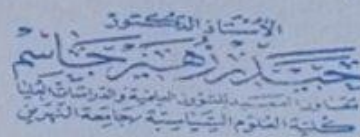 الأستاذ الدكتور
حيدر زهير جاسم
معاون العميد للشؤون العلمية والدراسات العليا
كلية العلوم السياسية / جامعة النهرين